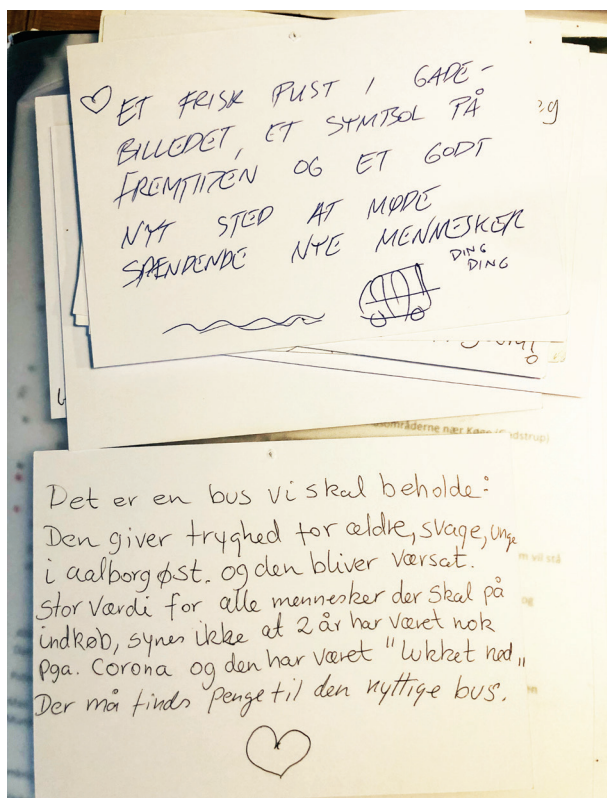 ET FRISK PUST I GADE-
BILLEDET, ET SYMBOL PÅ
FREMTIDEN OG ET GODT
NYT STED AT MØDE
SPÆNDENDE NYE MENNESKER
DING
DING
eg
områderne nær Køge (Gadstrup)
Det er en bus vi skal beholde:
Den giver tryghed for ældre, svage, unge
i aalborg øst. og den bliver værsat.
Stor værdi for alle mennesker der skal på
indkøb, synes ikke at 2 år har været nok
pga. Corona og den har været "lukket ned„
Der må finds penge til den nyttige bus.
m vil stå
og